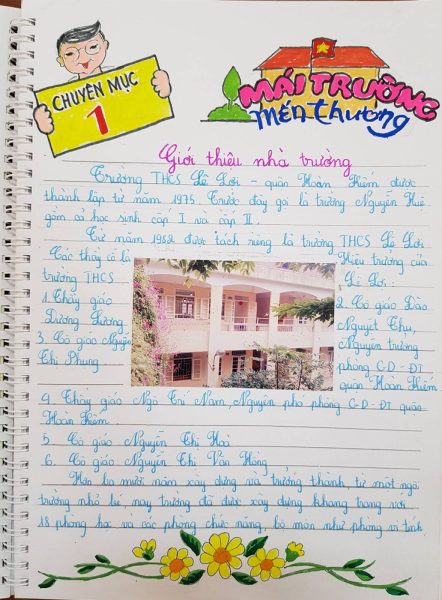 CHUYÊN MỤC
1
MÁI TRƯỜNG
mến thương
Giới thiệu nhà trường
Trường THCS Lê Lợi - quận Hoàn Kiếm được
thành lập từ năm 1975. Trước đây gọi là trường Nguyễn Huệ
gồm cả học sinh cấp I và cấp II
Từ năm 1982 được tách riêng là trường THCS Lê Lợi
Các thầy cô là Hiệu trưởng của
trường THCS Lê Lợi:
1. Thầy giáo
Dương Lương
2. Cô giáo Đào
Nguyệt Thu,
Nguyên trưởng
phòng GD - ĐT
quận Hoàn Kiếm
3. Cô giáo Nguyễn
Thị Phụng
4. Thầy giáo Ngô Trí Nam, Nguyên phó phòng GD - ĐT quận
Hoàn Kiếm
5. Cô giáo Nguyễn Thị Hoà
6. Cô giáo Nguyễn Thị Vân Hồng
Hơn ba mươi năm xây dựng và trưởng thành, từ một ngôi
trường nhỏ bé nay trường đã được xây dựng khang trang với
18 phòng học và các phòng chức năng, bộ môn như phòng vi tính